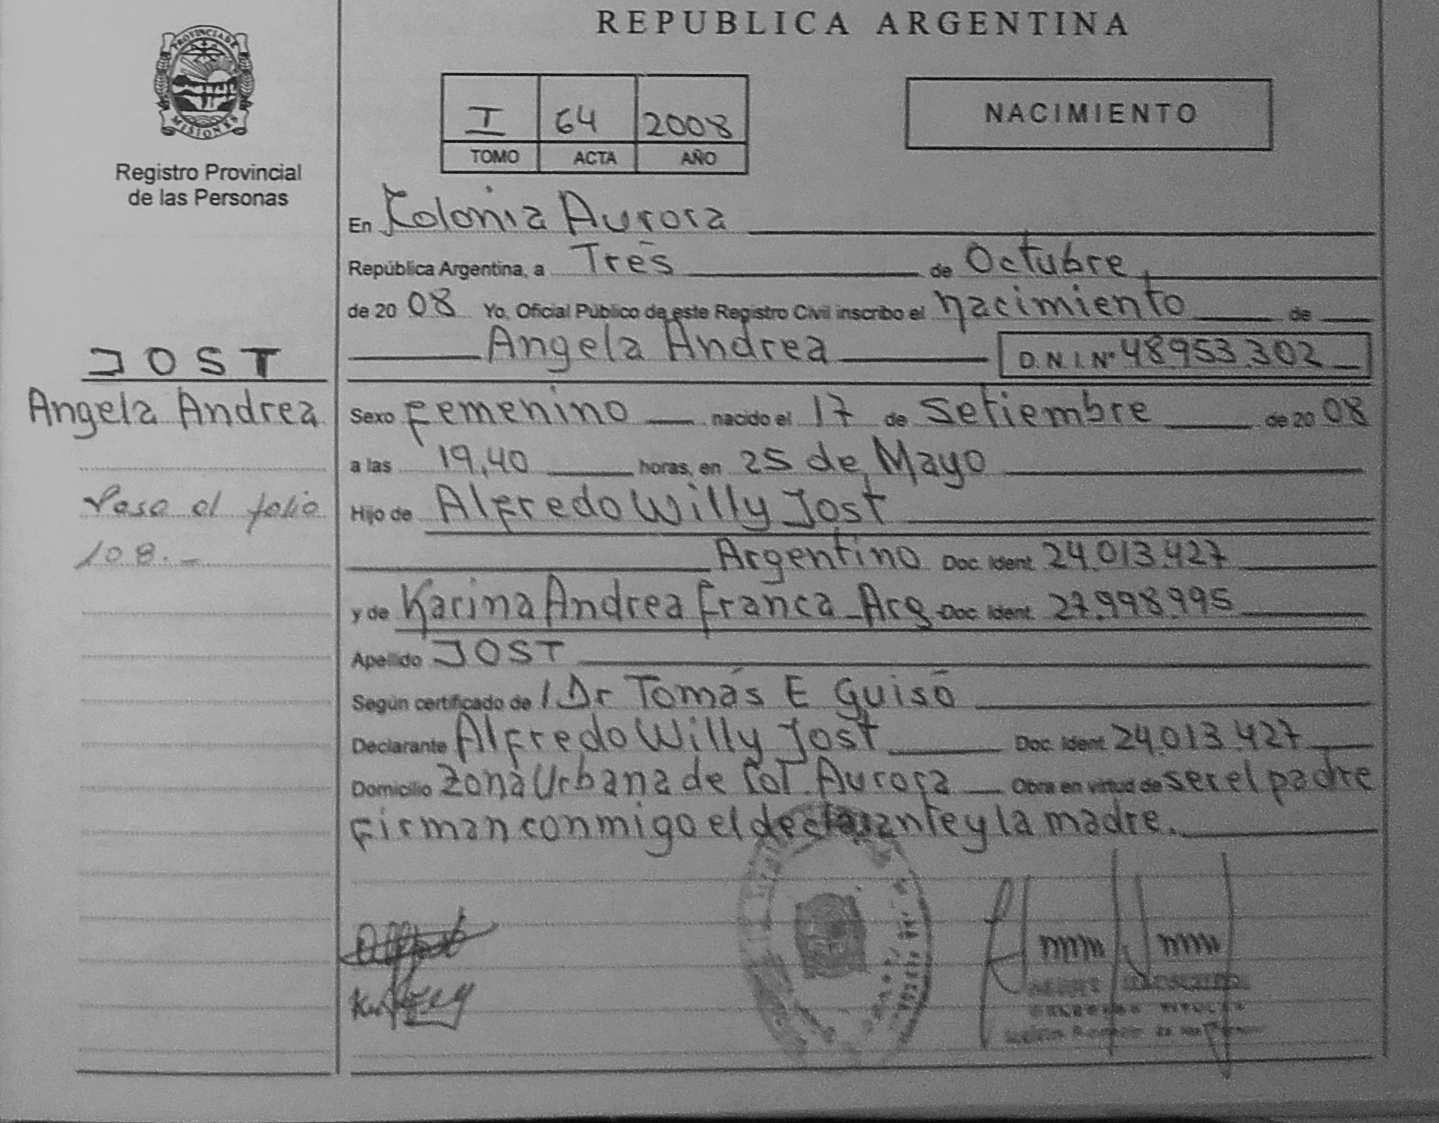 REPUBLICA ARGENTINA
PROVINCIA DE MISIONES
Registro Provincial
de las Personas
I 64 2008
TOMO ACTA AÑO
NACIMIENTO
En Kolonia Aurora
República Argentina, a Tres de Octubre
de 20 08 Yo, Oficial Público de este Registro Civil inscribo el nacimiento de
Angela Andrea D.N.I. Nº 48953.302
JOST
Angela Andrea
Pasa al folio
108.-
Sexo Femenino nacido el 17 de Setiembre de 20 08
a las 19,40 horas, en 25 de Mayo
Hijo de Alfredo Willy Jost
Argentino Doc. Ident. 24.013.427
y de Karina Andrea Franca - Arg Doc. Ident. 27.998.995
Apellido JOST
Según certificado de / Dr Tomás E Guisó
Declarante Alfredo Willy Jost Doc. Ident. 24.013.427
Domicilio Zona Urbana de Col. Aurora Obra en virtud de ser el padre
Firman conmigo el declarante y la madre.